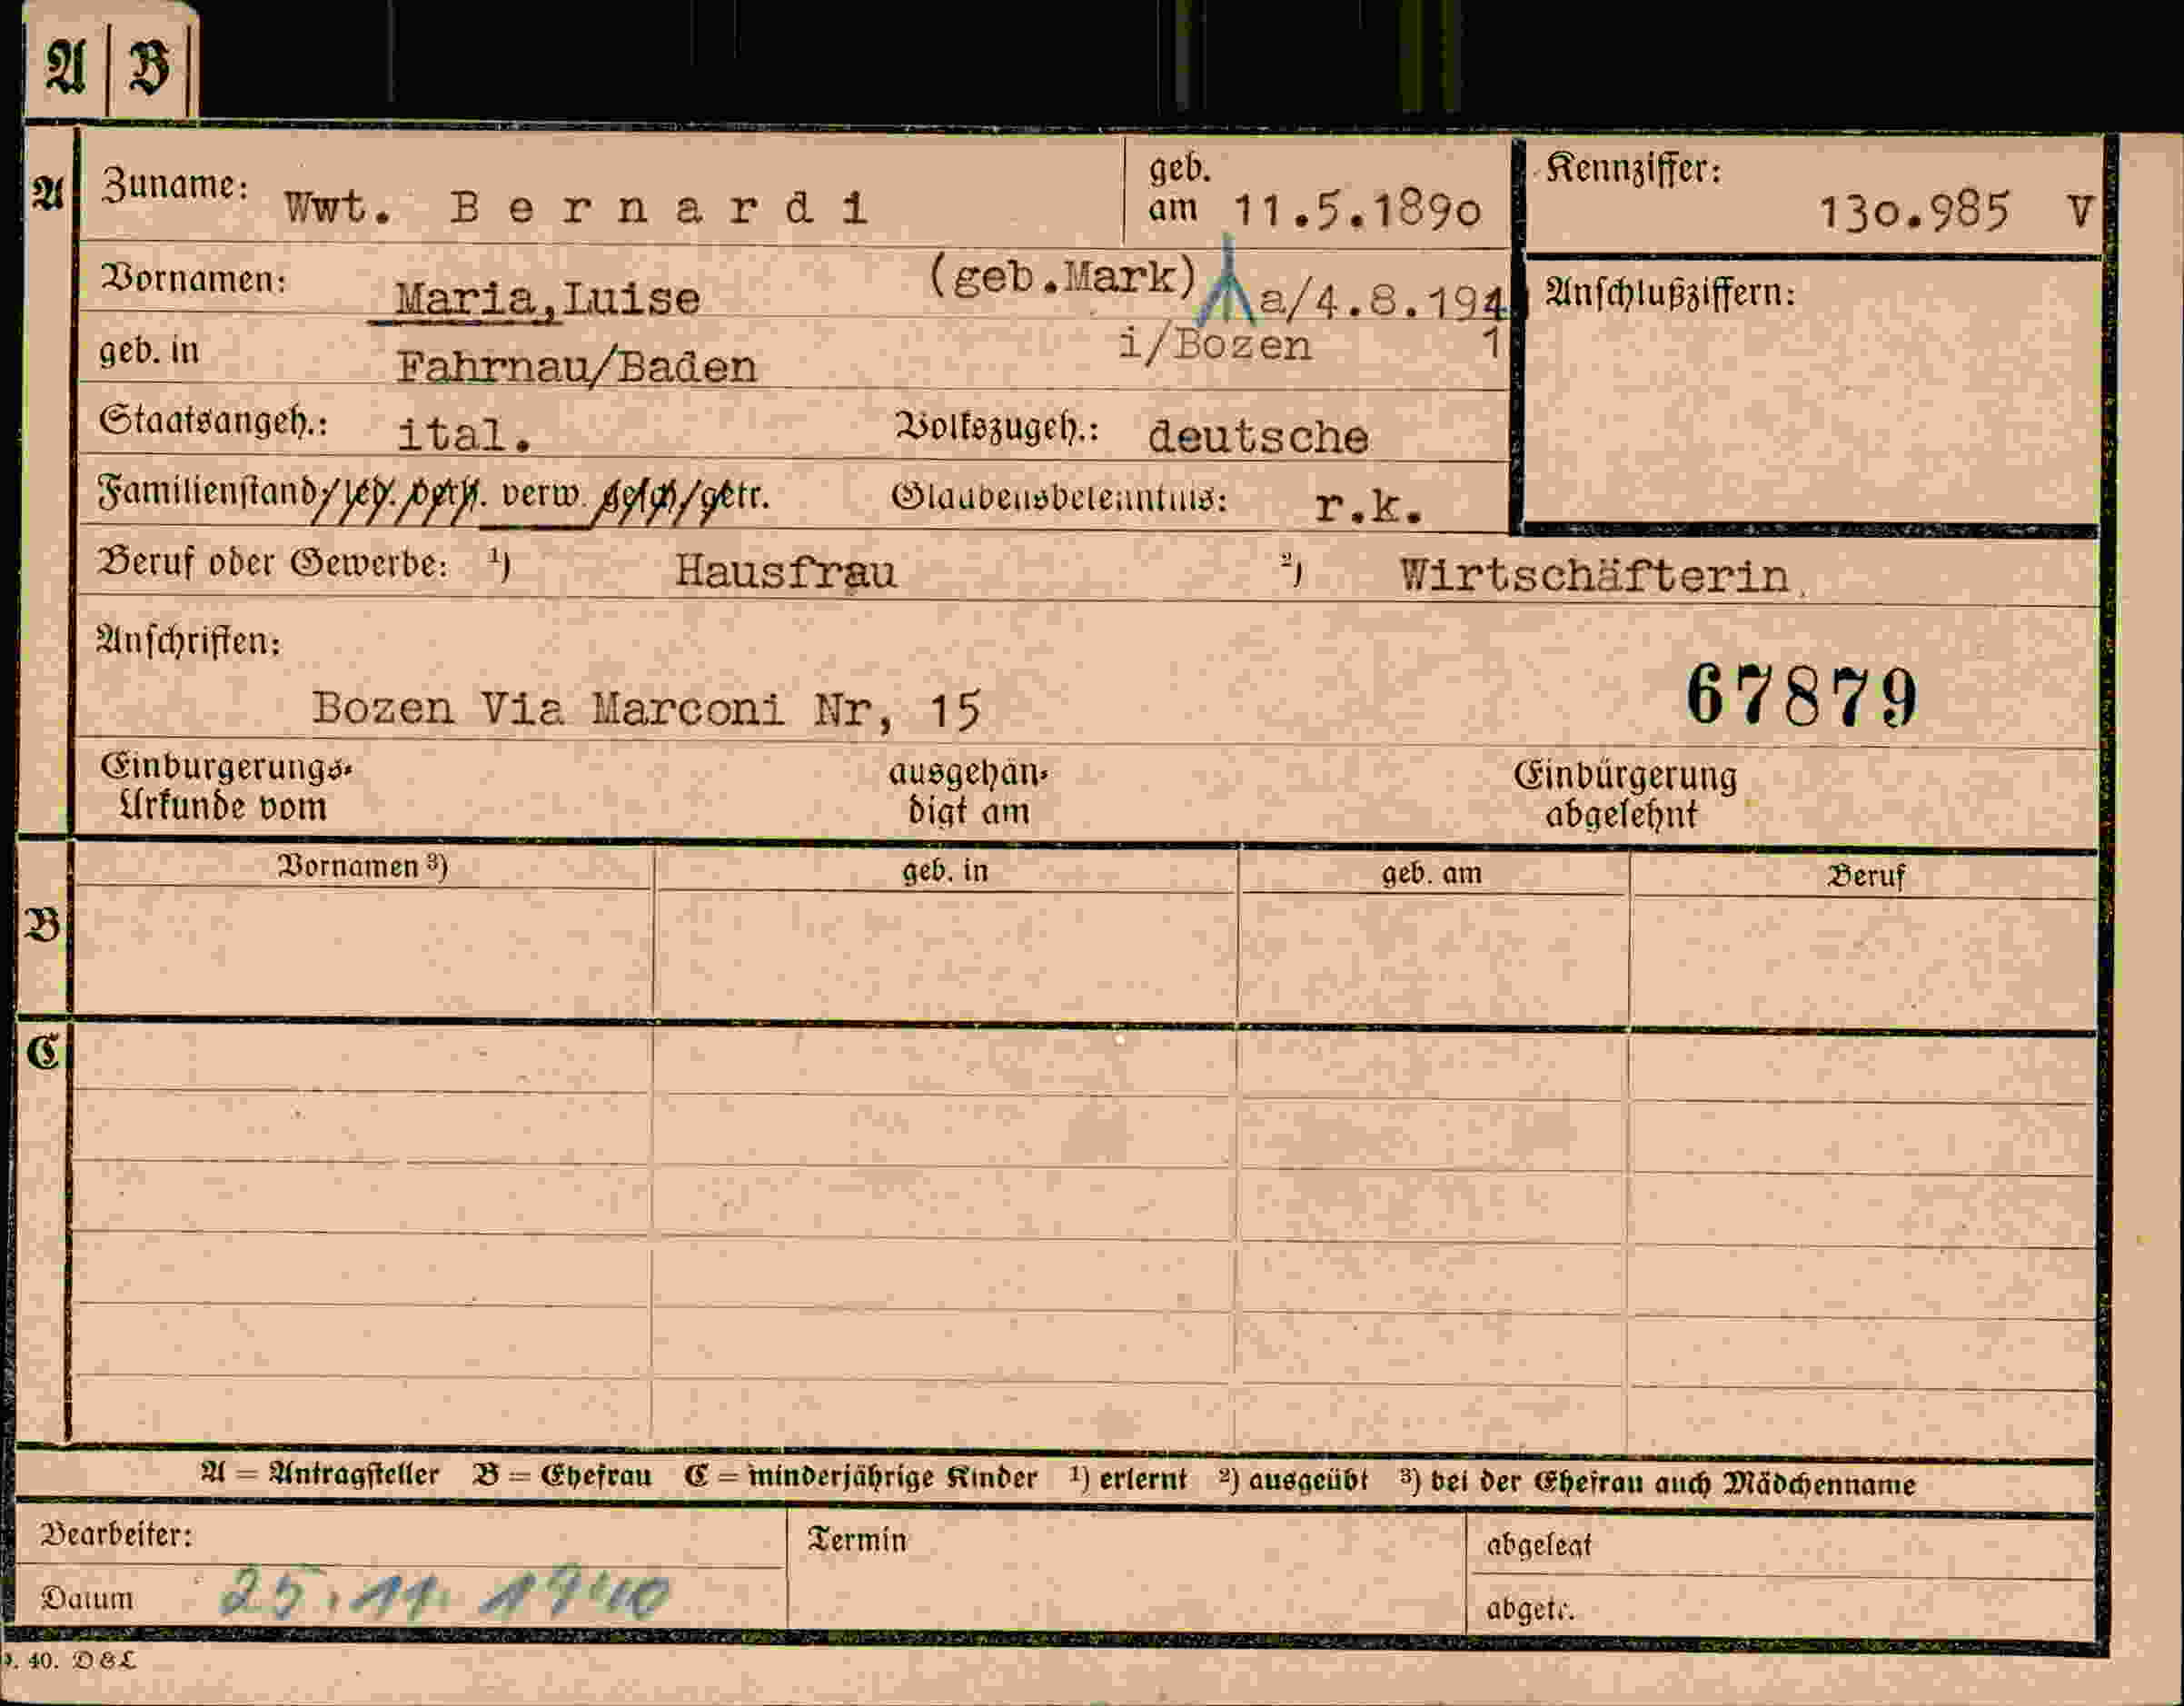 A B
A
Zuname: Wwt. Bernardi
geb. am 11.5.1890
Kennziffer: 130.985 V
Vornamen: Maria,Luise (geb.Mark) a/4.8.1941
Anschlußziffern:
geb. in Fahrnau/Baden i/Bozen
Staatsangeh.: ital. Volkszugeh.: deutsche
Familienstand: led. verh. verw. gesch. getr. Glaubensbekenntnis: r.k.
Beruf oder Gewerbe: ¹) Hausfrau ²) Wirtschäfterin
Anschriften:
Bozen Via Marconi Nr, 15 67879
Einbürgerungs-Urkunde vom
ausgehändigt am
Einbürgerung abgelehnt
B
Vornamen ³) geb. in geb. am Beruf
C
A = Antragsteller B = Ehefrau C = minderjährige Kinder ¹) erlernt ²) ausgeübt ³) bei der Ehefrau auch Mädchenname
Bearbeiter: Termin abgelegt
Datum 25.11.1940 abgetr.
40. D&L